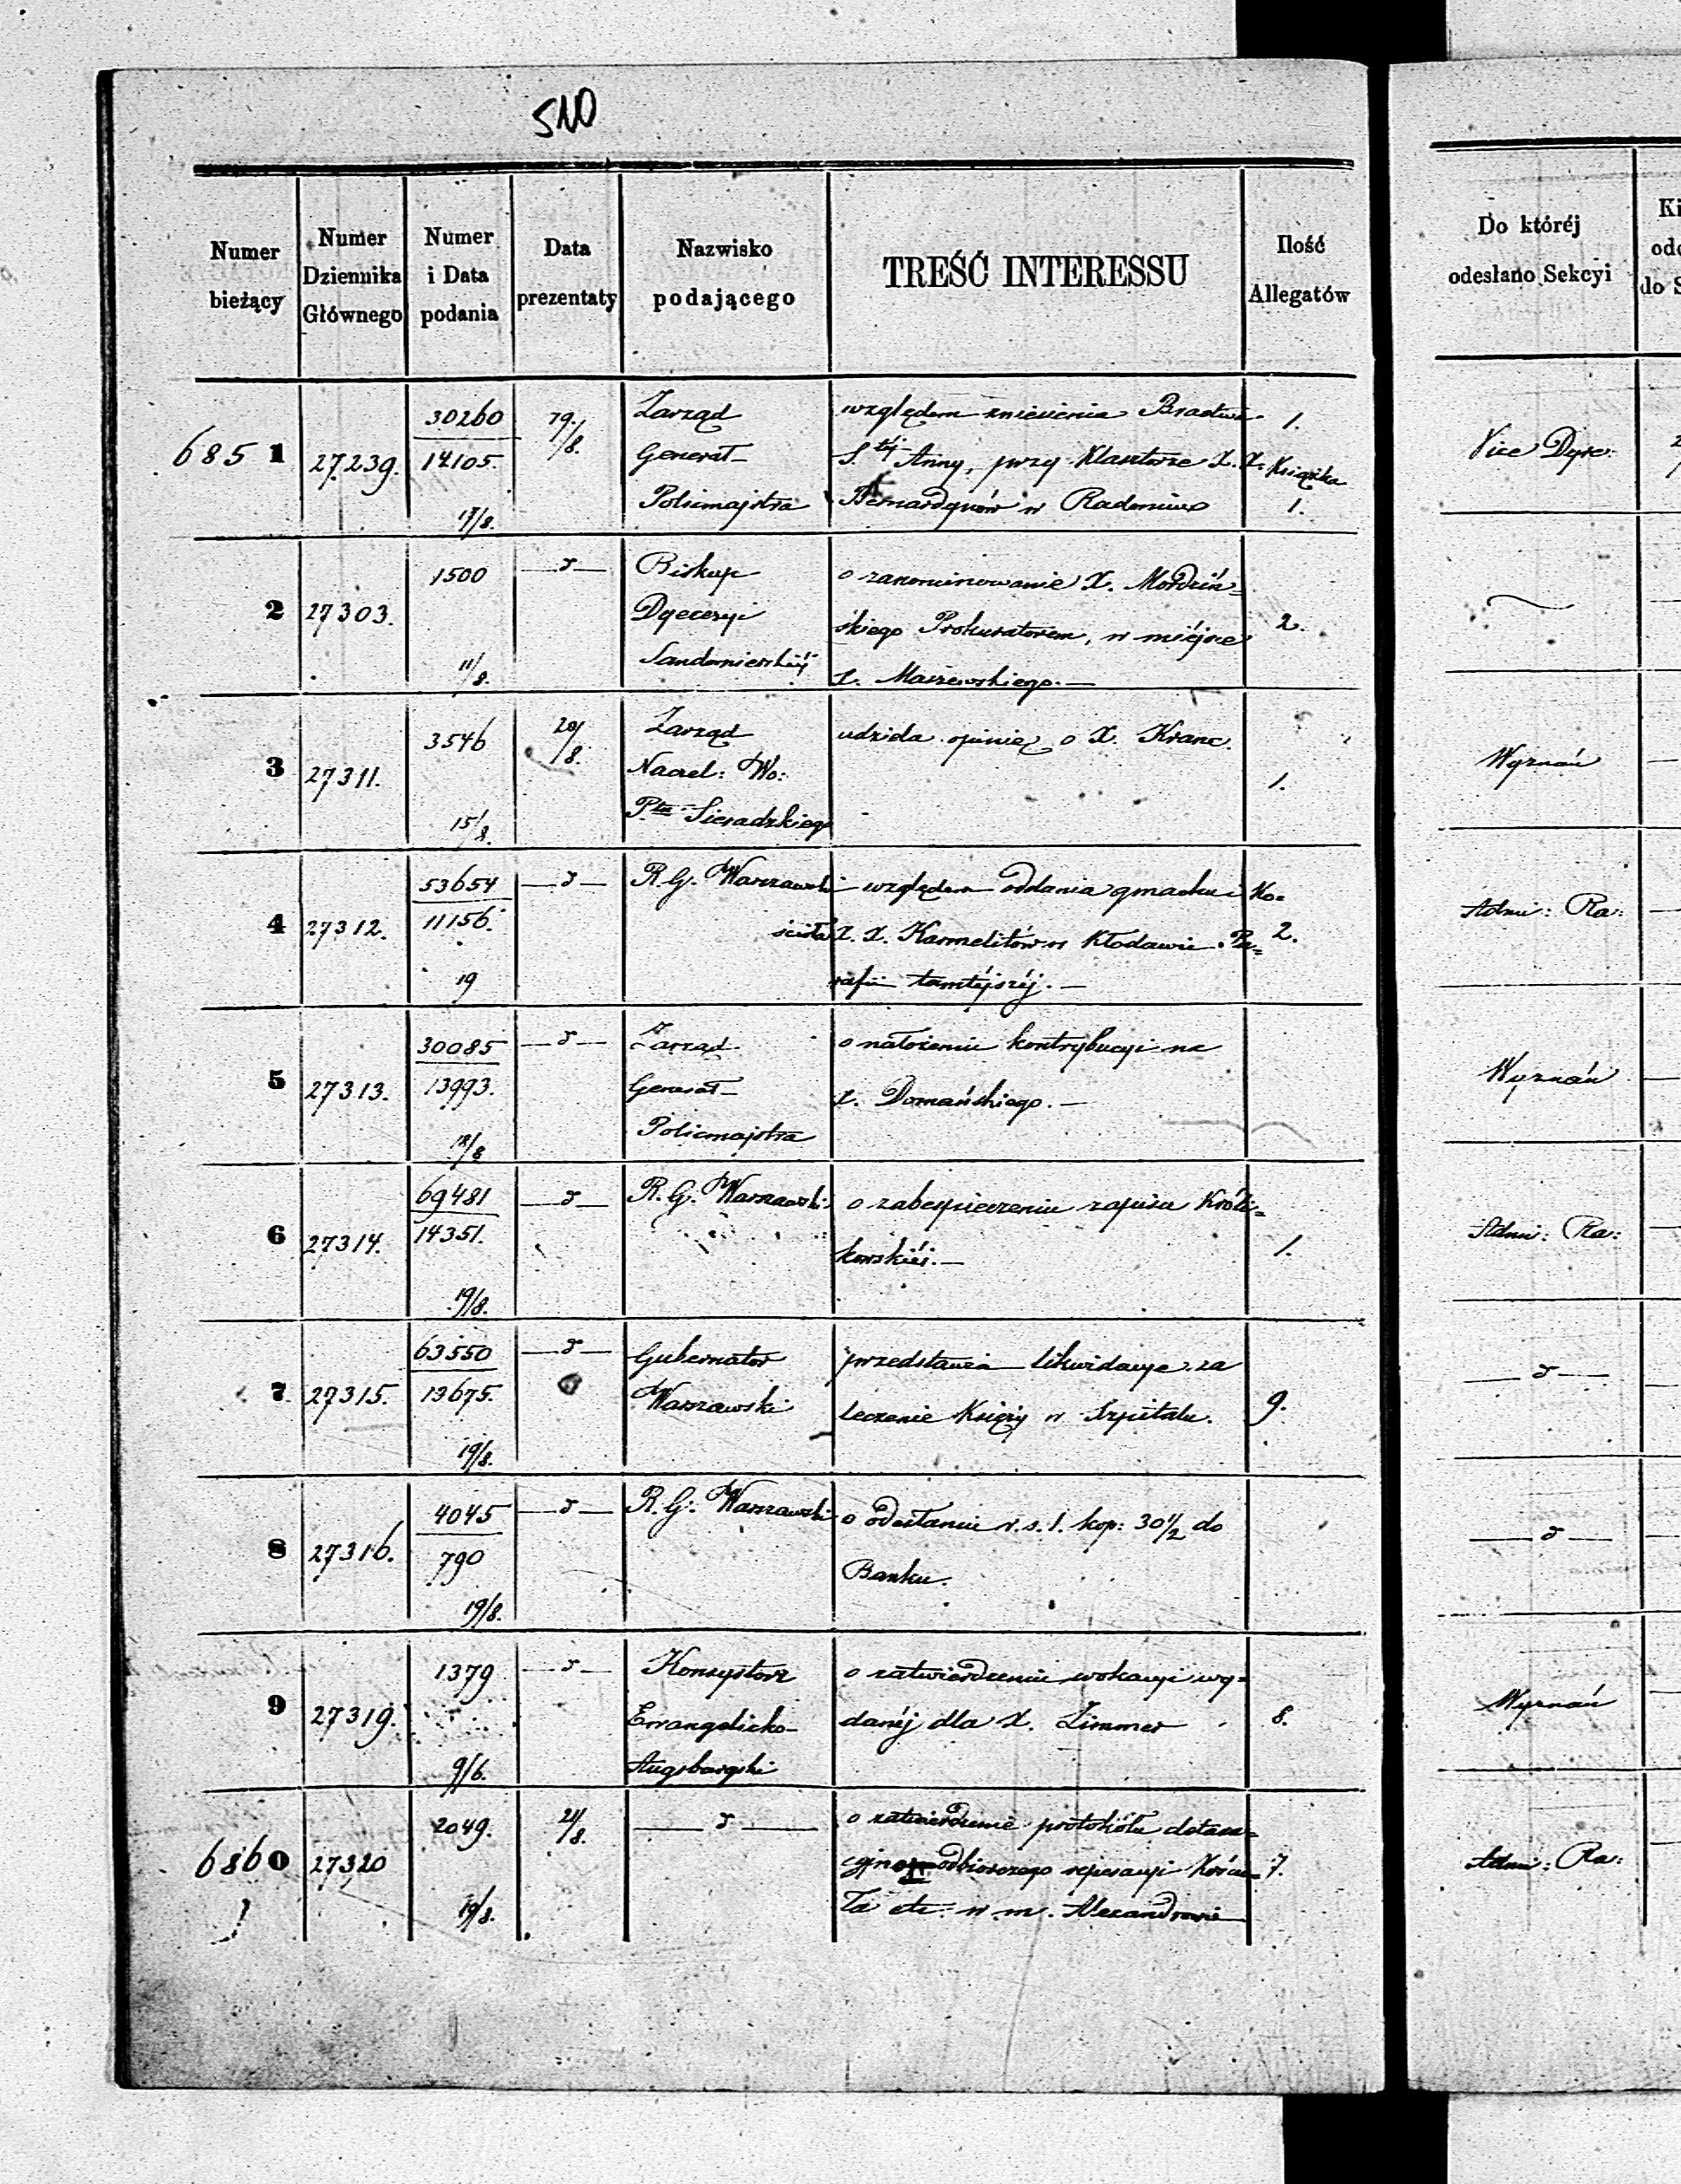 510
Numer bieżący
Numer Dziennika Głównego
Numer i Data podania
Data prezentaty
Nazwisko podającego
TREŚĆ INTERESSU
Ilość Allegatów
Do której odesłano Sekcyi
6851 27239. 30260 14105. 17/8. 19/8.
Zarząd
Generał-
Policmajstra
względem zniesienia Bractwa
S.téj Anny, przy Klasztorze X. X.
Bernardynów w Radomiu
1.
Książka
1.
Vice Dyre:
2 27303. 1500 11/8. —d—
Biskup
Dyecezyi
Sandomierskiéj
o zanominowanie X.
skiego Prokuratorem, w miéjsce
X. Maszewskiego.—
2.
3 27311. 3546 15/8. 20/8.
Zarząd
Naczel: Wo:
Ptu Sieradzkiego
udziela opinię o X. Kranc.
1.
Wyznań
4 27312. 53654 11156. 19 —d—
R. G. Warszawski
względem oddania gmachu i Ko=
scioła X. X. Karmelitów w Kłodawie Pa=
rafii tamtéjszéj.—
2.
Admi: Ra:
5 27313. 30085 13993. 18/8 —d—
Zarząd
Generał-
Policmajstra
o nałożeniu kontrybucyi na
X. Domańskiego.—
Wyznań
6 27314. 69481 14351. 19/8. —d—
R. G. Warszawski
o zabezpieczeniu zapisu Króli=
kowskiéj.—
1.
Admi: Ra:
7 27315. 63550 13675. 19/8. —d—
Gubernator
Warszawski
przedstawia likwidacye za
leczenie Księży w Szpitalu.
9.
—d—
8 27316. 4045 790 19/8. —d—
R. G. Warszawski
o odesłaniu r. s. 1. kop: 30 1/2 do
Banku.
—d—
9 27319. 1379 9/6. —d—
Konsystorz
Ewangelicko-
Augsburgski
o zatwierdzeniu wokacyi wy=
danéj dla X. Zimmer
8.
Wyznań
6860 27320 2049. 19/8. 21/8. —d—
o zatwierdzenie protokółu
odbiorczego reperacyi Kościo=
ła etc. w m. Alexandrowie
7.
Admi: Ra: